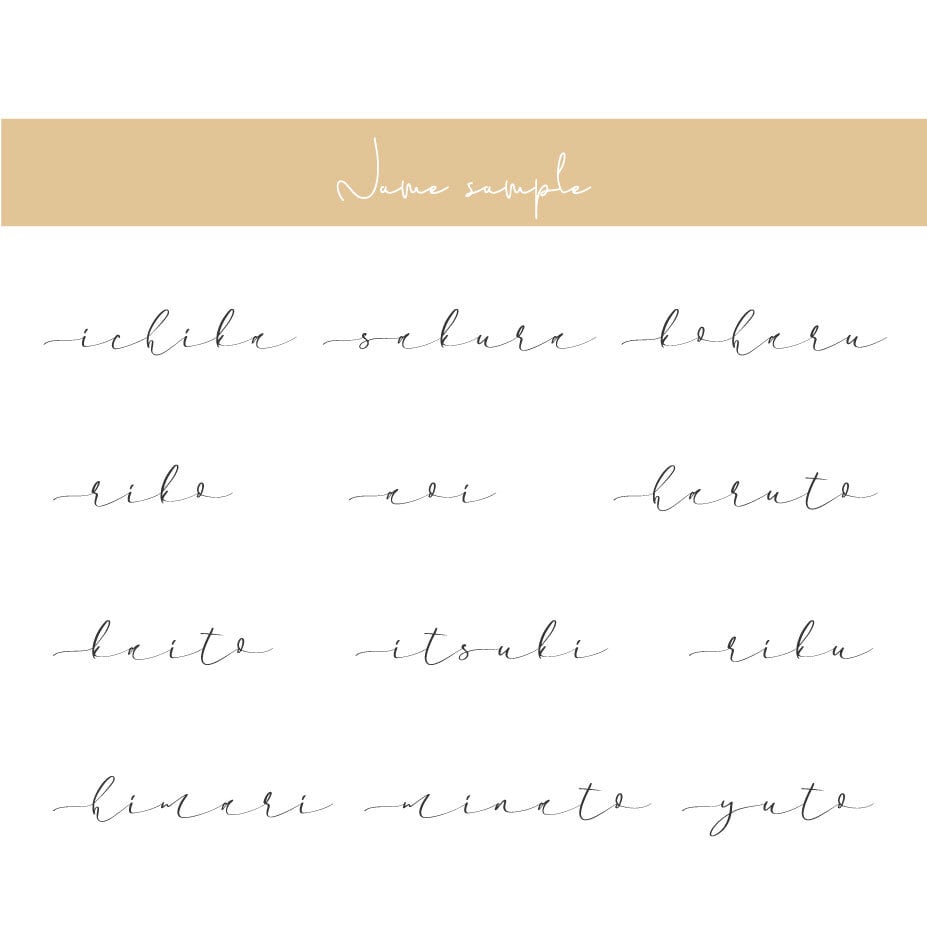 Name sample
ichika sakura koharu
riko aoi haruto
kaito itsuki riku
himari minato yuto